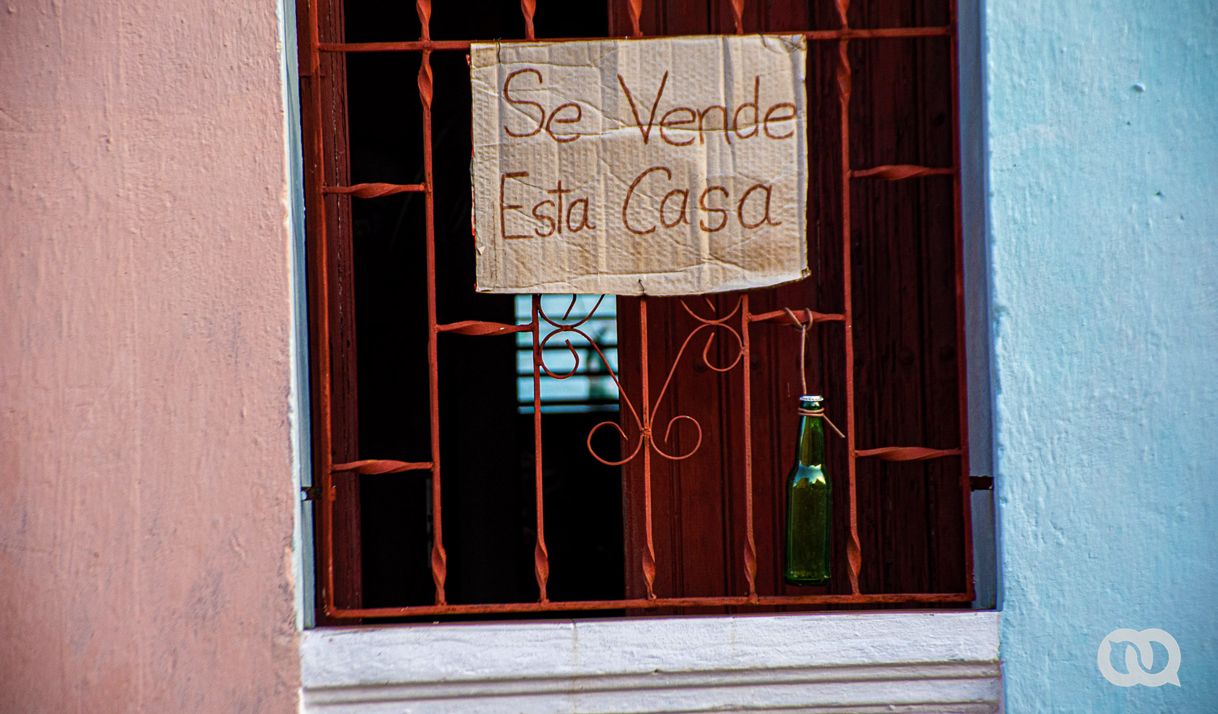 Se Vende
Esta Casa